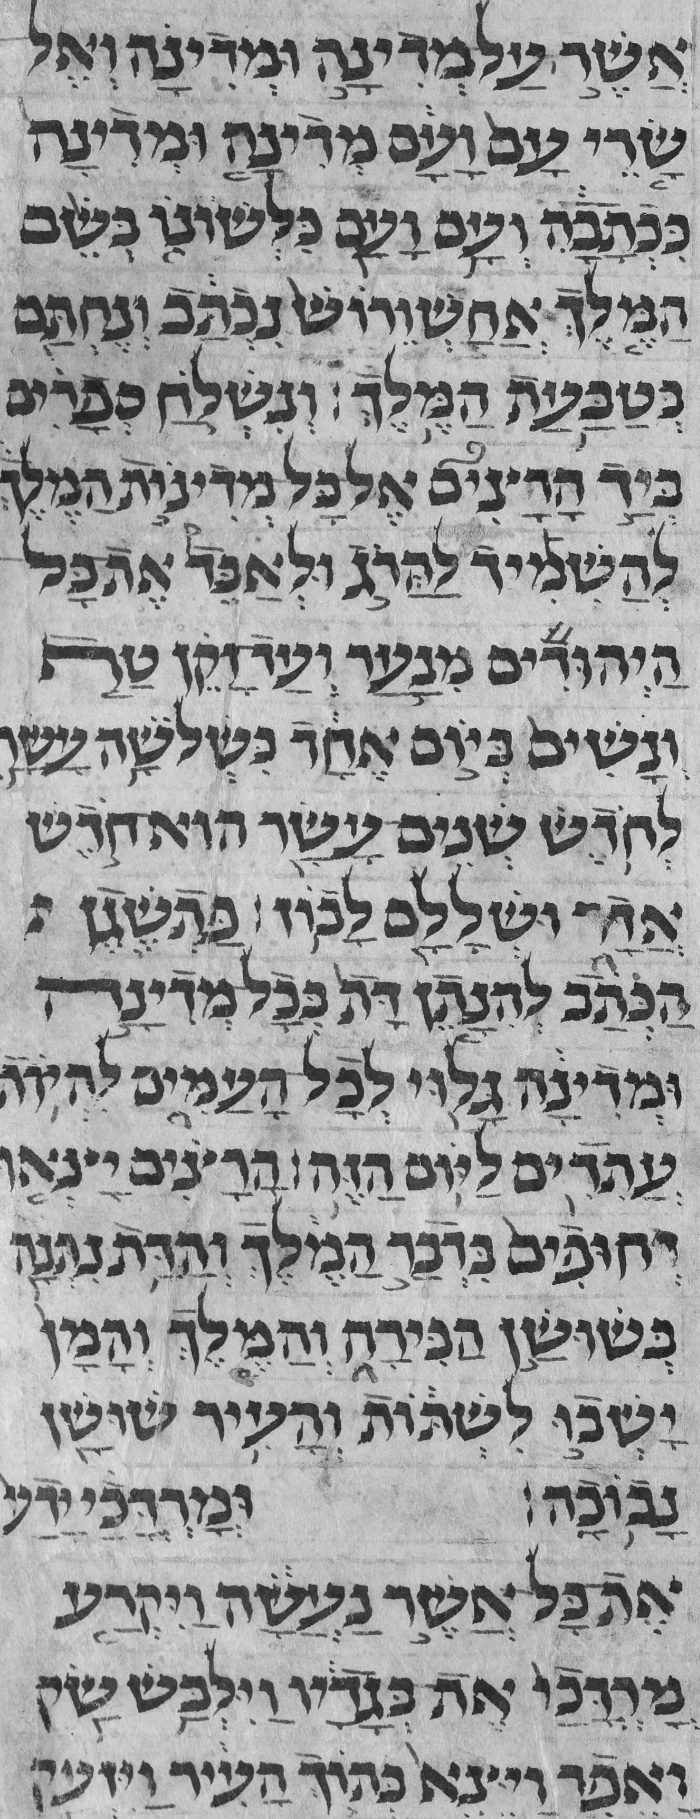 אֲשֶׁר עַל מְדִינָה וּמְדִינָה וְאֶל
שָׂרֵי עַם וָעָם מְדִינָה וּמְדִינָה
כִּכְתָבָהּ וְעַם וָעָם כִּלְשׁוֹנוֹ בְּשֵׁם
הַמֶּלֶךְ אֲחַשְׁוֵרוֹשׁ נִכְתָּב וְנֶחְתָּם
בְּטַבַּעַת הַמֶּלֶךְ׃ וְנִשְׁלוֹחַ סְפָרִים
בְּיַד הָרָצִים אֶל כָּל מְדִינוֹת הַמֶּלֶךְ
לְהַשְׁמִיד לַהֲרֹג וּלְאַבֵּד אֶת כָּל
הַיְּהוּדִים מִנַּעַר וְעַד זָקֵן טַף
וְנָשִׁים בְּיוֹם אֶחָד בִּשְׁלֹשָׁה עָשָׂר
לְחֹדֶשׁ שְׁנֵים עָשָׂר הוּא חֹדֶשׁ
אֲדָר וּשְׁלָלָם לָבוֹז׃ פַּתְשֶׁגֶן
הַכְּתָב לְהִנָּתֵן דָּת בְּכָל מְדִינָה
וּמְדִינָה גָּלוּי לְכָל הָעַמִּים לִהְיוֹת
עֲתִדִים לַיּוֹם הַזֶּה׃ הָרָצִים יָצְאוּ
דְחוּפִים בִּדְבַר הַמֶּלֶךְ וְהַדָּת נִתְּנָה
בְּשׁוּשַׁן הַבִּירָה וְהַמֶּלֶךְ וְהָמָן
יָשְׁבוּ לִשְׁתּוֹת וְהָעִיר שׁוּשָׁן
נָבוֹכָה׃ וּמָרְדֳּכַי יָדַע
אֶת כָּל אֲשֶׁר נַעֲשָׂה וַיִּקְרַע
מָרְדֳּכַי אֶת בְּגָדָיו וַיִּלְבַּשׁ שַׂק
וָאֵפֶר וַיֵּצֵא בְּתוֹךְ הָעִיר וַיִּזְעַק